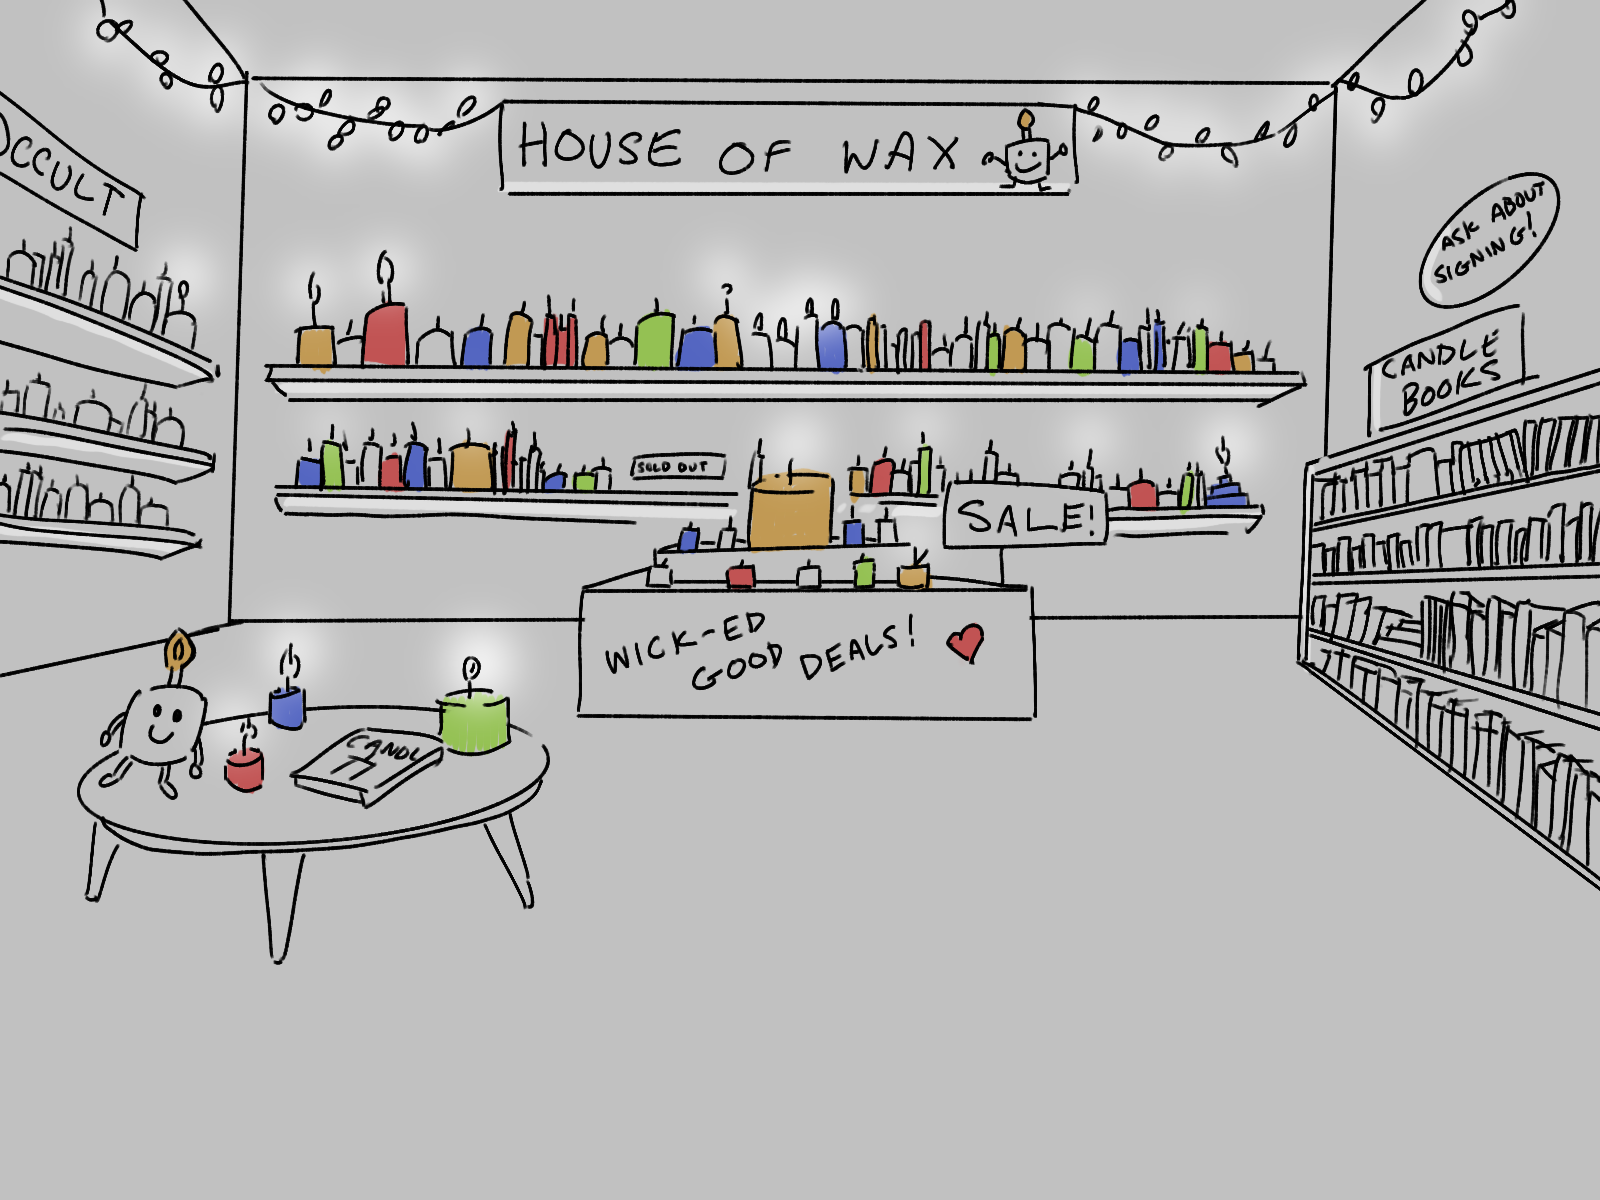 HOUSE OF WAX
OCCULT
ASK ABOUT
SIGNING!
CANDLE
BOOKS
SOLD OUT
SALE!
WICK-ED
GOOD DEALS!
CANDL